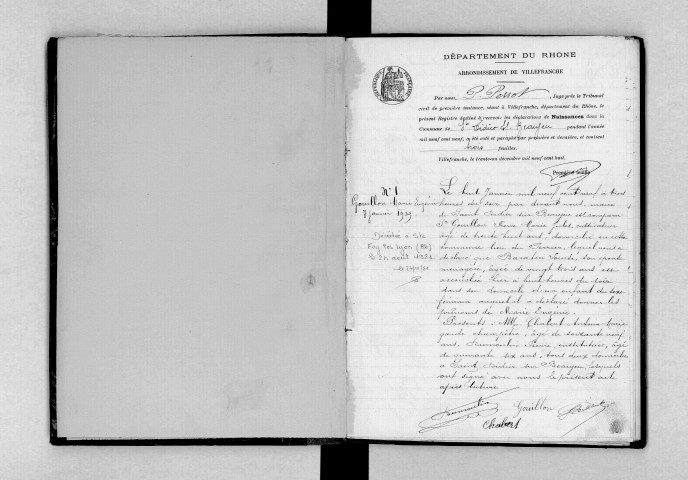 DÉPARTEMENT DU RHONE
ARRONDISSEMENT DE VILLEFRANCHE
Par nous, P. Perrot, Juge près le Tribunal
civil de première instance, séant à Villefranche, département du Rhône, le
présent Registre destiné à recevoir les déclarations de Naissances dans la
Commune de St Didier s/ Beaujeu pendant l'année
mil neuf cent neuf, a été coté et paraphé par première et dernière, et contient
trois feuilles.
Villefranche, le trente-un décembre mil neuf cent huit.
Première feuille
N° 1
Gouillon Marie Eugénie
7 janvier 1909.
Décédée à Ste
Foy les Lyon (Rh)
le 24 août 1981
Le huit Janvier mil neuf cent neuf à trois
heures du soir par devant nous, maire
de Saint Didier sur Beaujeu est comparu
Gouillon Marie, cultivateur
âgé de trente huit ans, domicilié en cette
commune lieu du lequel nous a
déclaré que son épouse
ménagère, âgée de vingt trois ans est
accouchée hier à huit heures du soir
dans son domicile d'un enfant du sexe
féminin auquel il a déclaré donner les
prénoms de Marie Eugénie.
Présents: MM. Chabert Antoine Marie
garde champêtre, âgé de soixante neuf
ans, Pierre, instituteur, âgé
de quarante six ans, tous deux domiciliés
à Saint Didier sur Beaujeu, lesquels
ont signé avec nous le présent acte
après lecture
Gouillon
Chabert